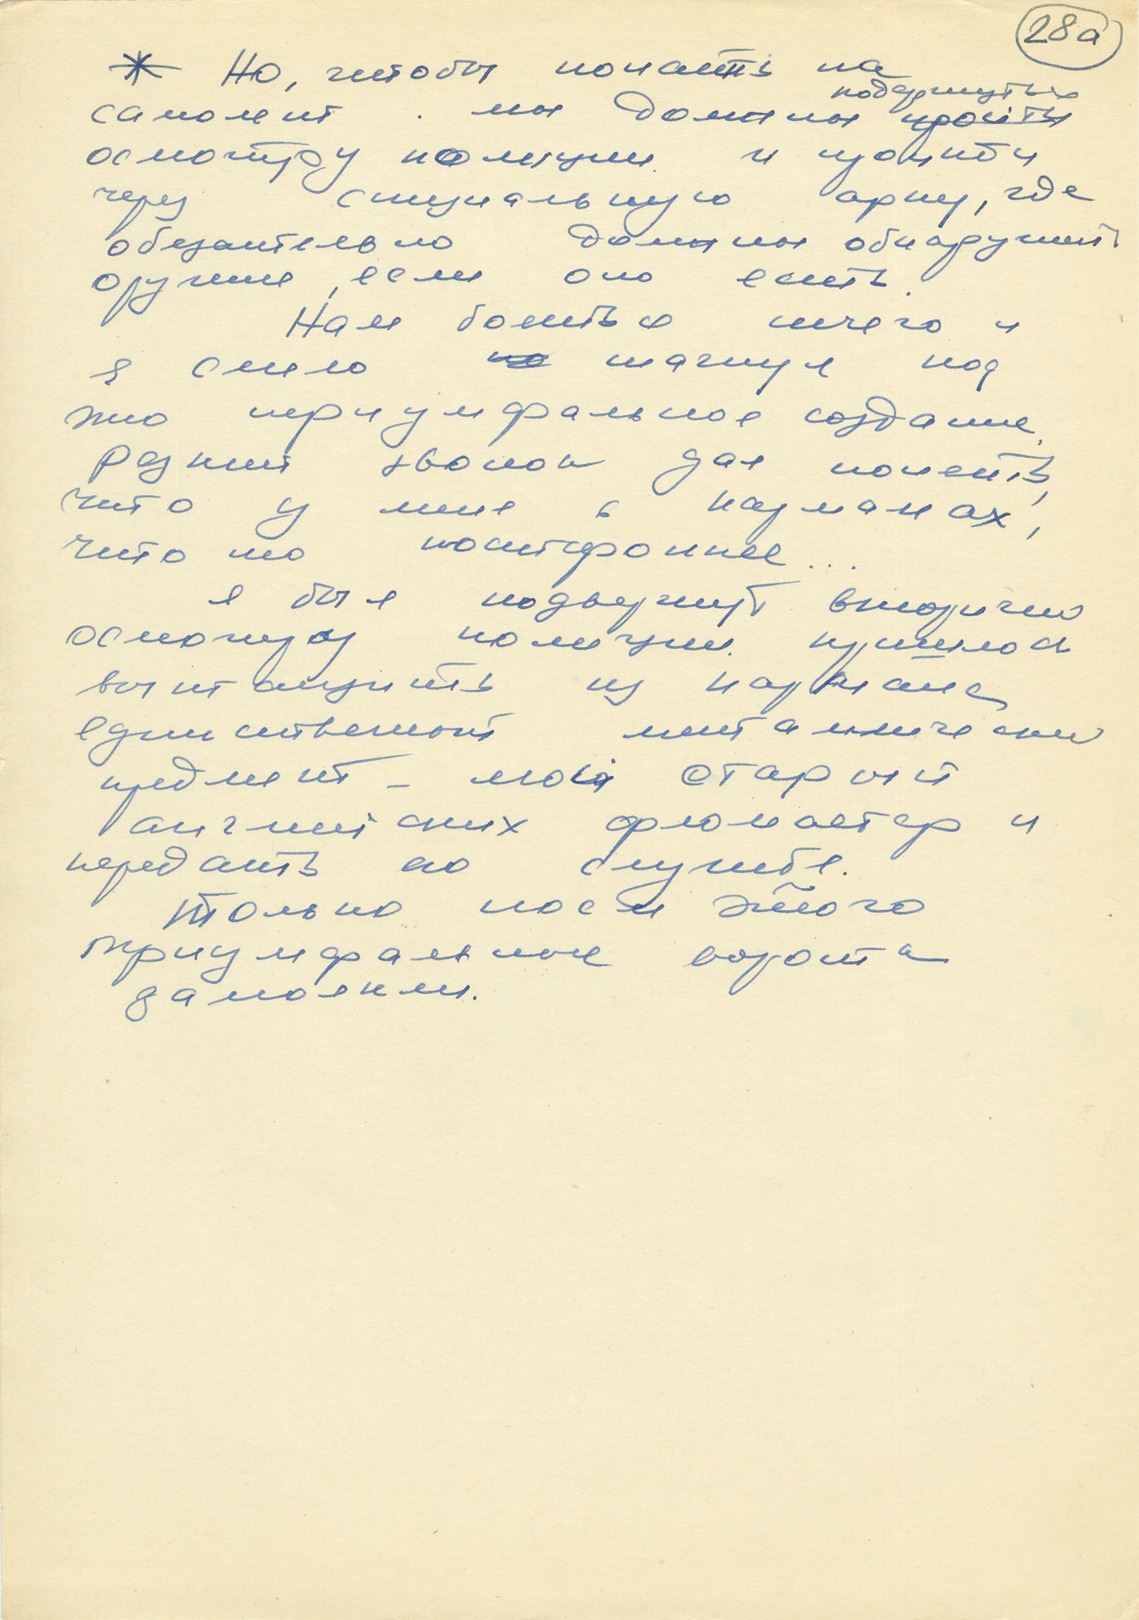 28а
* Но, чтобы попасть на
подвергнуться
самолет . мы должны пройти
осмотру полиции и пройти
через специальную арку, где
обязательно должны обнаружить
оружие, если оно есть.
Нам бояться нечего и
я смело по шагнул под
это триумфальное создание.
Резкий звонок дал понять,
что у меня в карманах,
что то постороннее...
Я был подвергнут вторично
осмотру полиции. пришлось
вытащить из кармана
единственный металлический
предмет - мой старый
английских фломастер и
передать его службе.
Только после этого
триумфальные ворота
замолкли.